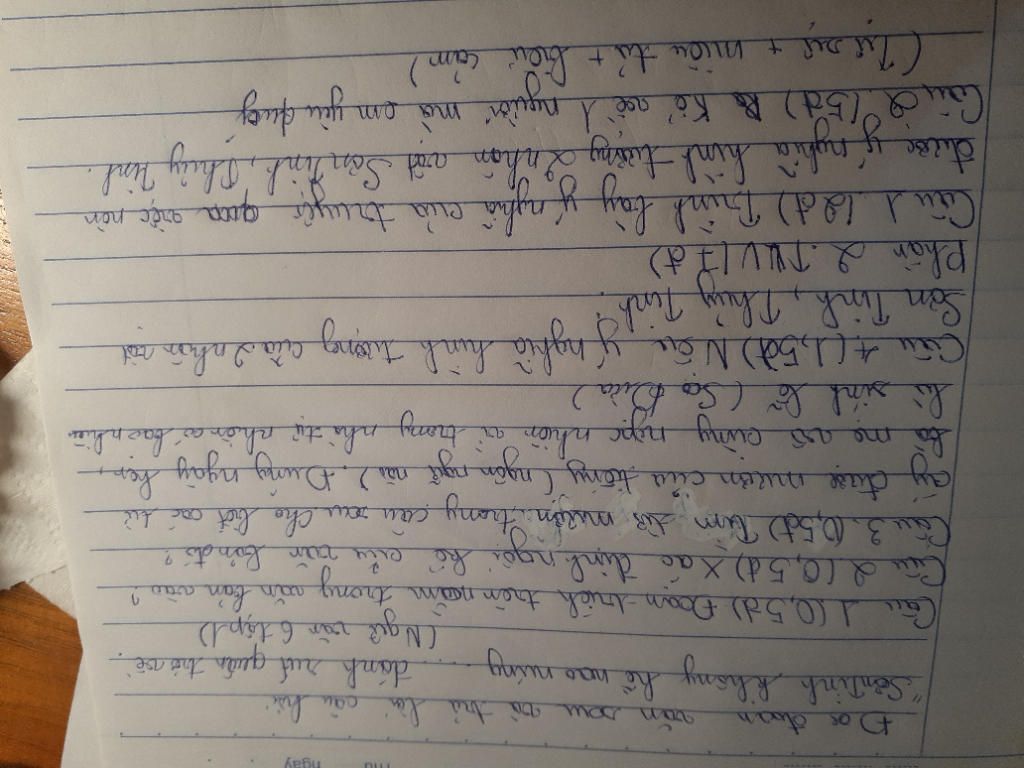 Đọc đoạn văn sau và trả lời câu hỏi.
"Sơn Tinh không hề nao núng ..... đành rút quân trở về.
(Ngữ văn 6 tập 1)
Câu 1 (0,5đ) Đoạn trích trên nằm trong văn bản nào?
Câu 2 (0,5đ) Xác định ngôi kể của văn bản đó?
Câu 3. (0,5đ) Tìm từ mượn trong câu sau cho biết các từ
ấy được mượn của tiếng (ngôn ngữ nào). Đúng ngày hẹn,
bà mẹ vô cùng ngạc nhiên vì trong nhà tự nhiên có bao nhiêu
là sính lễ (Sọ Dừa)
Câu 4 (1,5đ) Nêu ý nghĩa hình tượng của 2 nhân vật
Sơn Tinh, Thủy Tinh.
Phần 2. TLV (7đ)
Câu 1 (2đ) Trình bày ý nghĩa của truyện qua việc nắm
được ý nghĩa hình tượng 2 nhân vật Sơn Tinh, Thủy Tinh.
Câu 2. (5đ) Kể về 1 người mà em yêu quý
(Tự sự + miêu tả + biểu cảm)